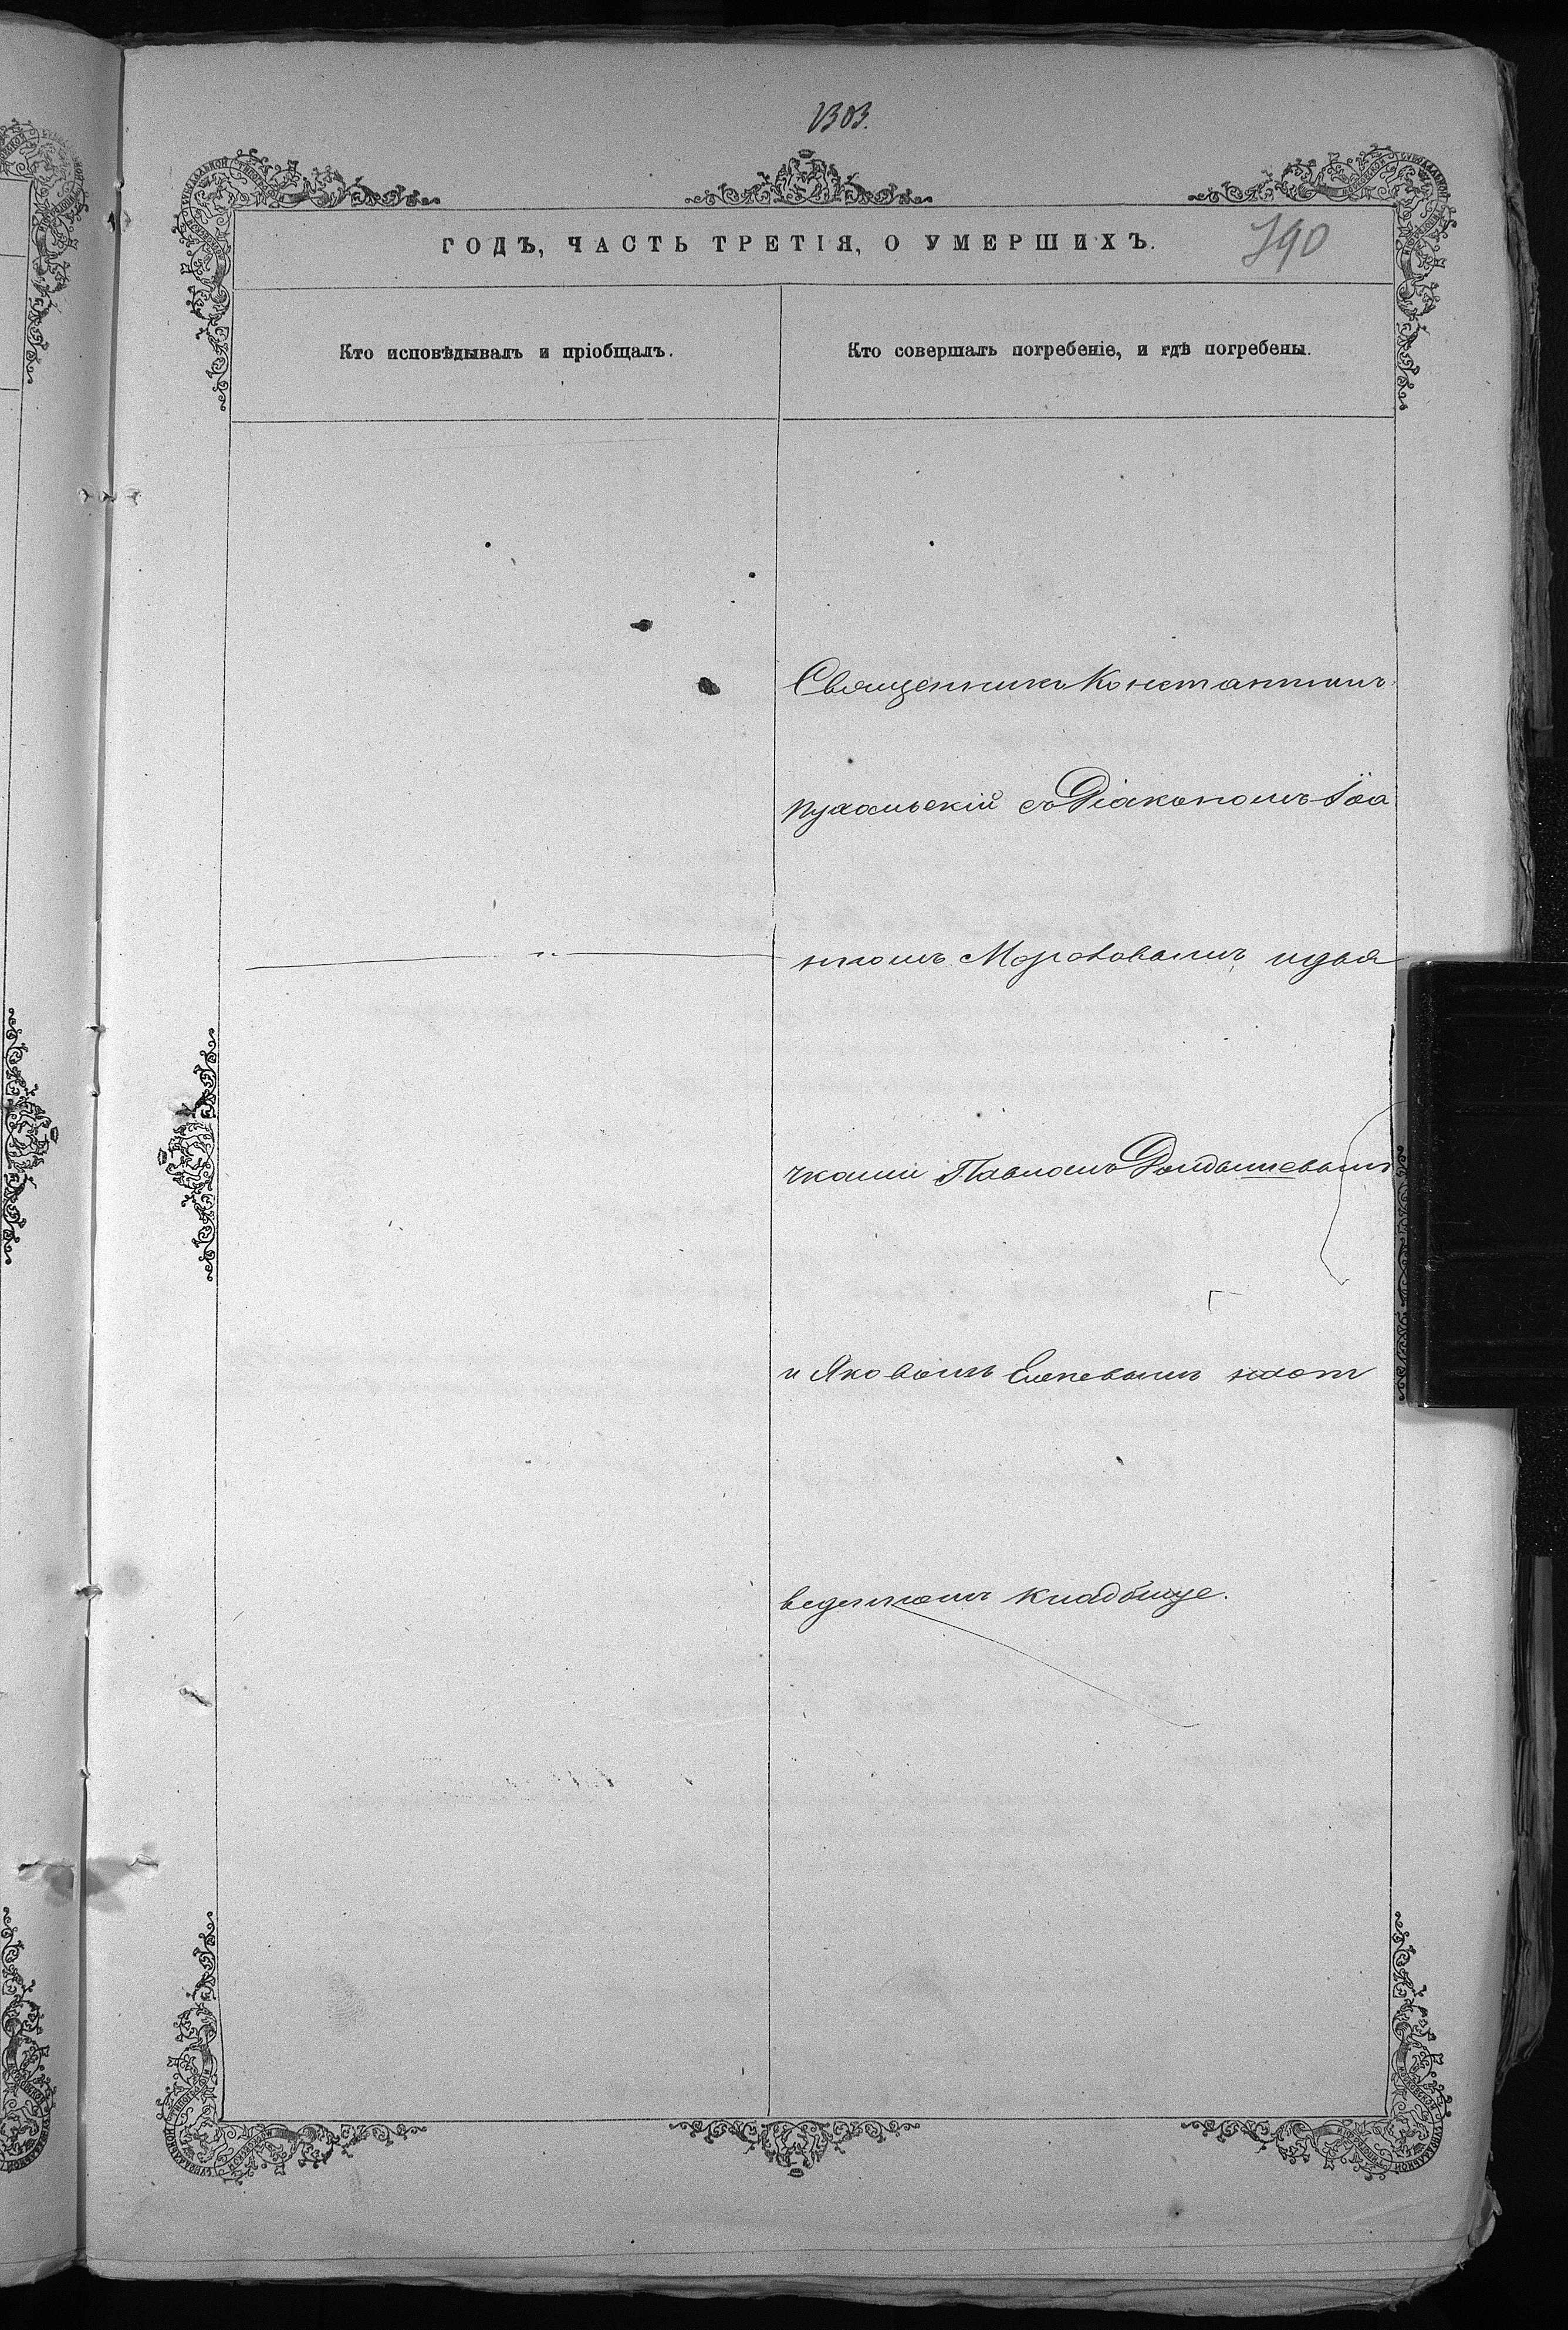 1303.
ГОДЪ, ЧАСТЬ ТРЕТІЯ, О УМЕРШИХЪ.
390
Кто исповѣдывалъ и пріобщалъ.
Кто совершалъ погребеніе, и гдѣ погребены.
Священникъ Константинъ
съ Діакономъ Іоа
нномъ Морововымъ идья
чками Павломъ
и Яковомъ наот
веденномъ кладбище.